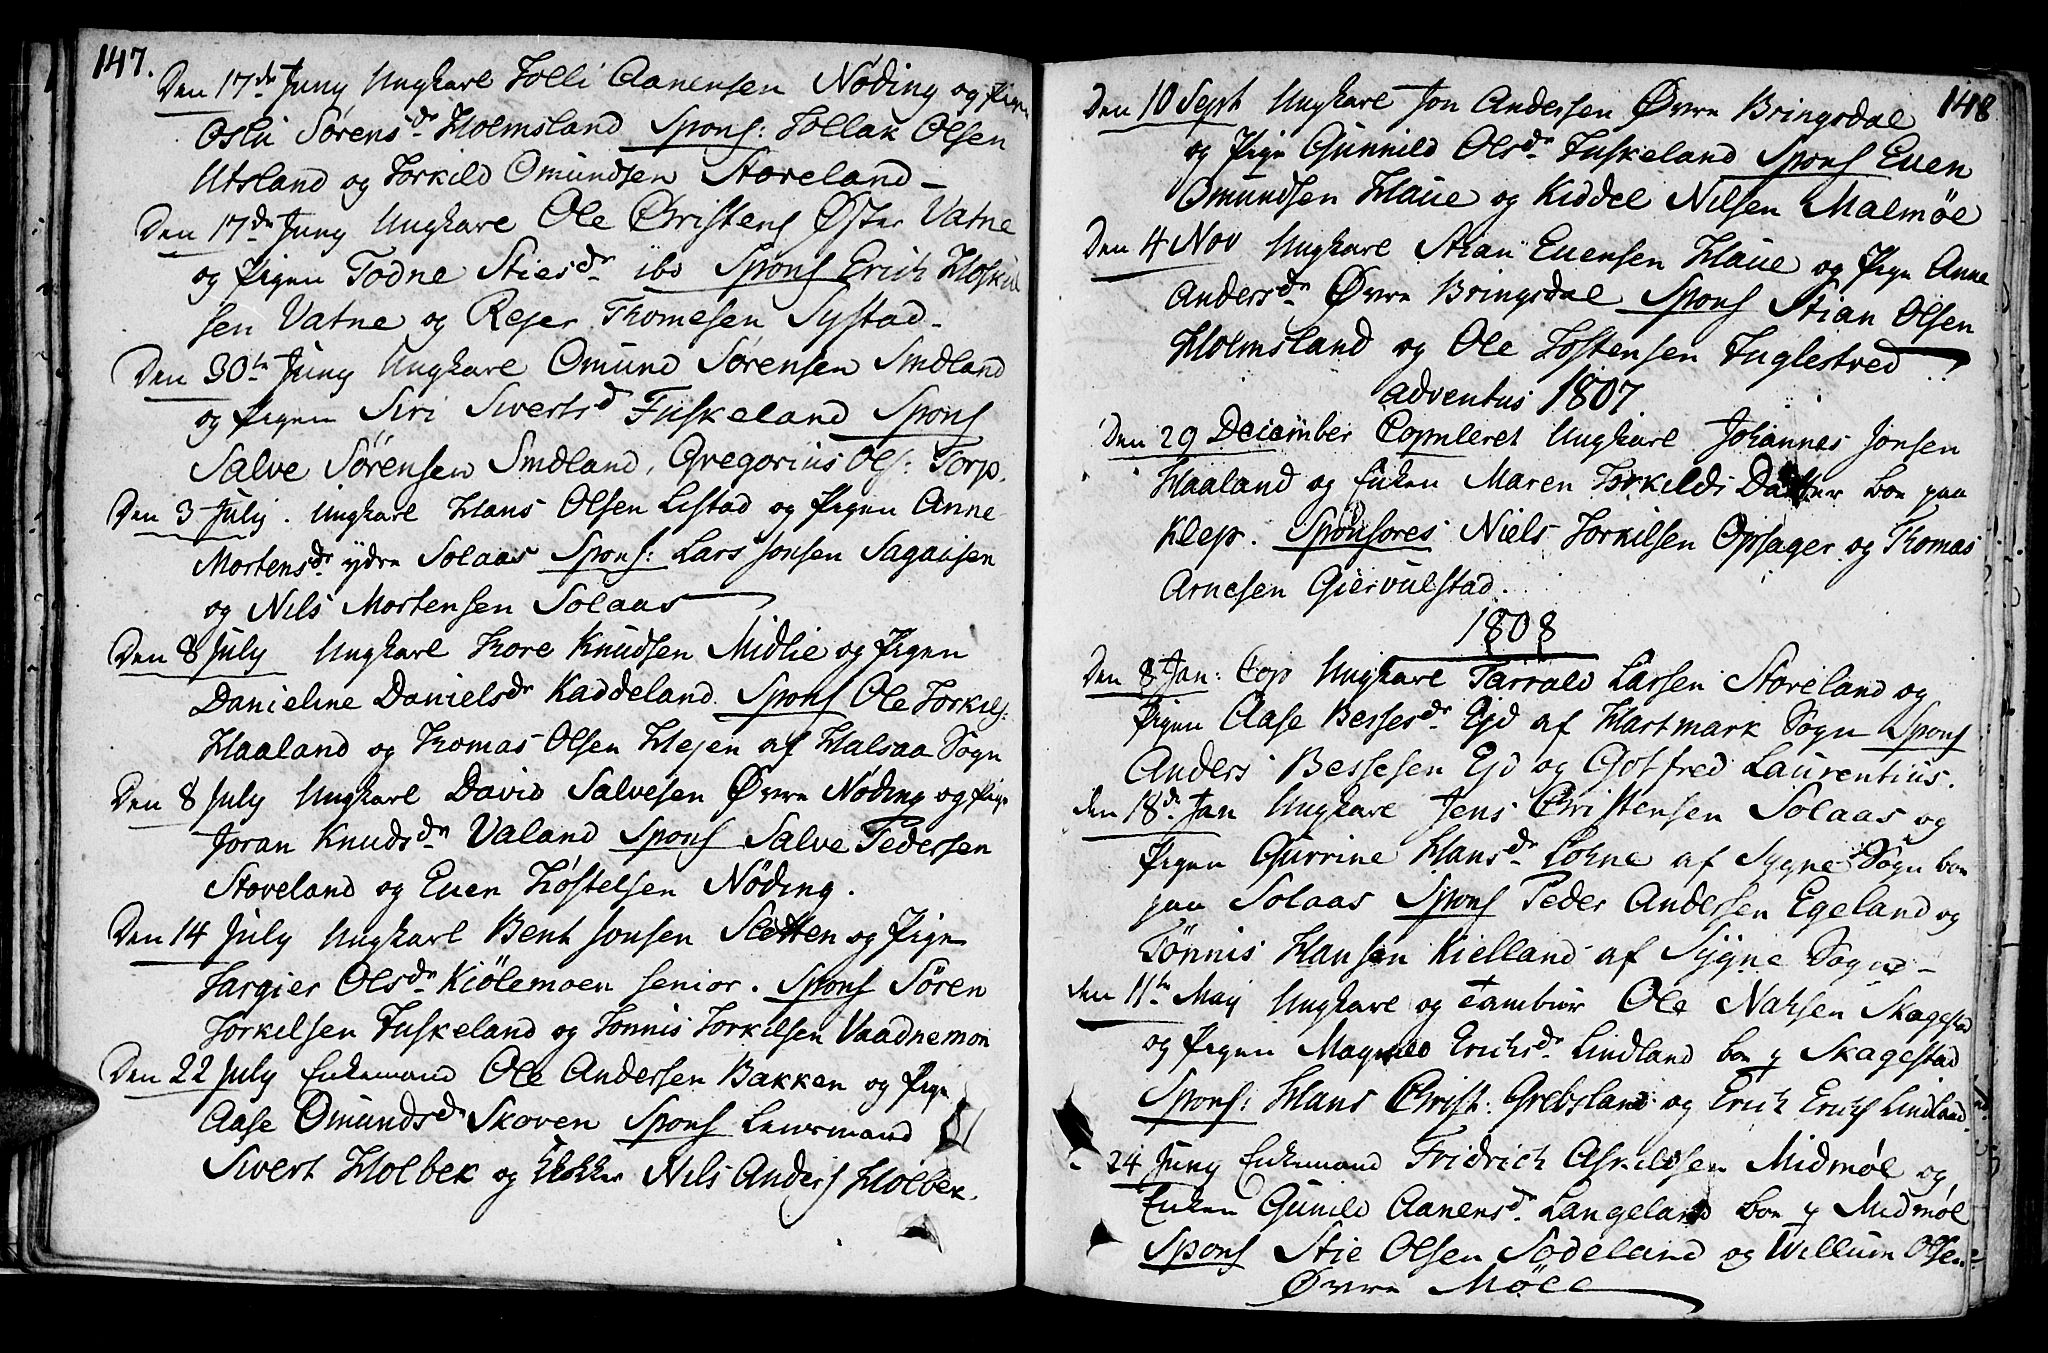 147.
Den 17de Juny Ungkarl Tolli Aanensen Nøding og Pigen
Oslu Sørensdr Holmsland Spons: Tollak Olsen
Utsland og Torkild Omundsen Storeland
Den 17de Juny Ungkarl Ole Christens Øster Vatne
og Pigen Todne Stiesdr ibd Spons Erich Hoskul
sen Vatne og Rejer Thomesen Systad
Den 30te Juny Ungkarl Omund Sørensen Smdland
og Pigen Siri Sivertsd Fuskeland Spons
Salve Sørensen Smdland, Gregorius Ols: Torp.
Den 3 July. Ungkarl Hans Olsen Lestad og Pigen Anne
Mortensdr ydre Solaas Spons: Lars Jonsen Sagaasen
og Nils Mortensen Solaas
Den 8 July Ungkarl Thore Knudsen Midlie og Pigen
Danieline Danielsdr Kaddeland. Spons Ole Torkels:
Haaland og Thomas Olsen Hejen af Halsaa Sogn
Den 8 July Ungkarl David Salvesen Øvre Nøding og Pige
Joran Knudsdr Valand Spons Salve Pedersen
Storeland og Even Tøstelsen Nøding.
Den 14 July Ungkarl Bent Jonsen Sletten og Pige
Targier Olsdr Kiölemoen senior. Spons Sören
Torkilsen Fuskeland og Tønnis Torkilsen Vaadnemon
Den 22 July Enkemand Ole Andersen Bakken og Pige
Aase Omundsdr Skoven Spons Lensmand
Sivert Holbek og Klokker Nils Anders Holbek.
148
Den 10 Sept Ungkarl Jon Andersen Øvre Bringsdal
og Pige Gunnild Olsdr Fuskeland Spons Even
Omundsen Haue og Kiddel Nilsen Malmöe
Den 4 Nov Ungkarl Stian Evensen Haue og Pige Anne
Andersdr Øvre Bringsdal Spons Stian Olsen
Holmsland og Ole Tostensen Fuglestved
adventus 1807
Den 29 December Copuleret Ungkarl Johannes Jonsen
Haaland og Enken Maren Torkilds Datter boe paa
Klep. Sponsores Niels Torkilsen Opsager og Thomas
Arnesen Giervulstad.
1808
Den 8 Jan: Cop Ungkarl Tarrald Larsen Storeland og
Pigen Aase Bessesdr Ejd af Hartmark Sogn Spons
Anders Bessesen Ejd og Gotfred Laurentius.
den 18de Jan Ungkarl Jens Christensen Solaas og
Pigen Gurrine Hansdr Lohne af Sygne Sogn boe
paa Solaas Spons Peder Andersen Egeland og
Tönnis Hansen Kielland af Sygne Sogn
den 11te May Ungkarl og Tambur Ole Nahsen Skagestad
og Pigen Magnild Erichsdr Lindland boe p Skagestad
Spons: Hans Christ: Grebsland og Erich Erichs Lindland.
24 Juny Enkemand Fridrich Askildsen Midmøl og
Enken Gunild Aanensdr Langeland boe p Midmøl
Spons Stie Olsen Sodeland og Willum Olsen
Øvre Möll